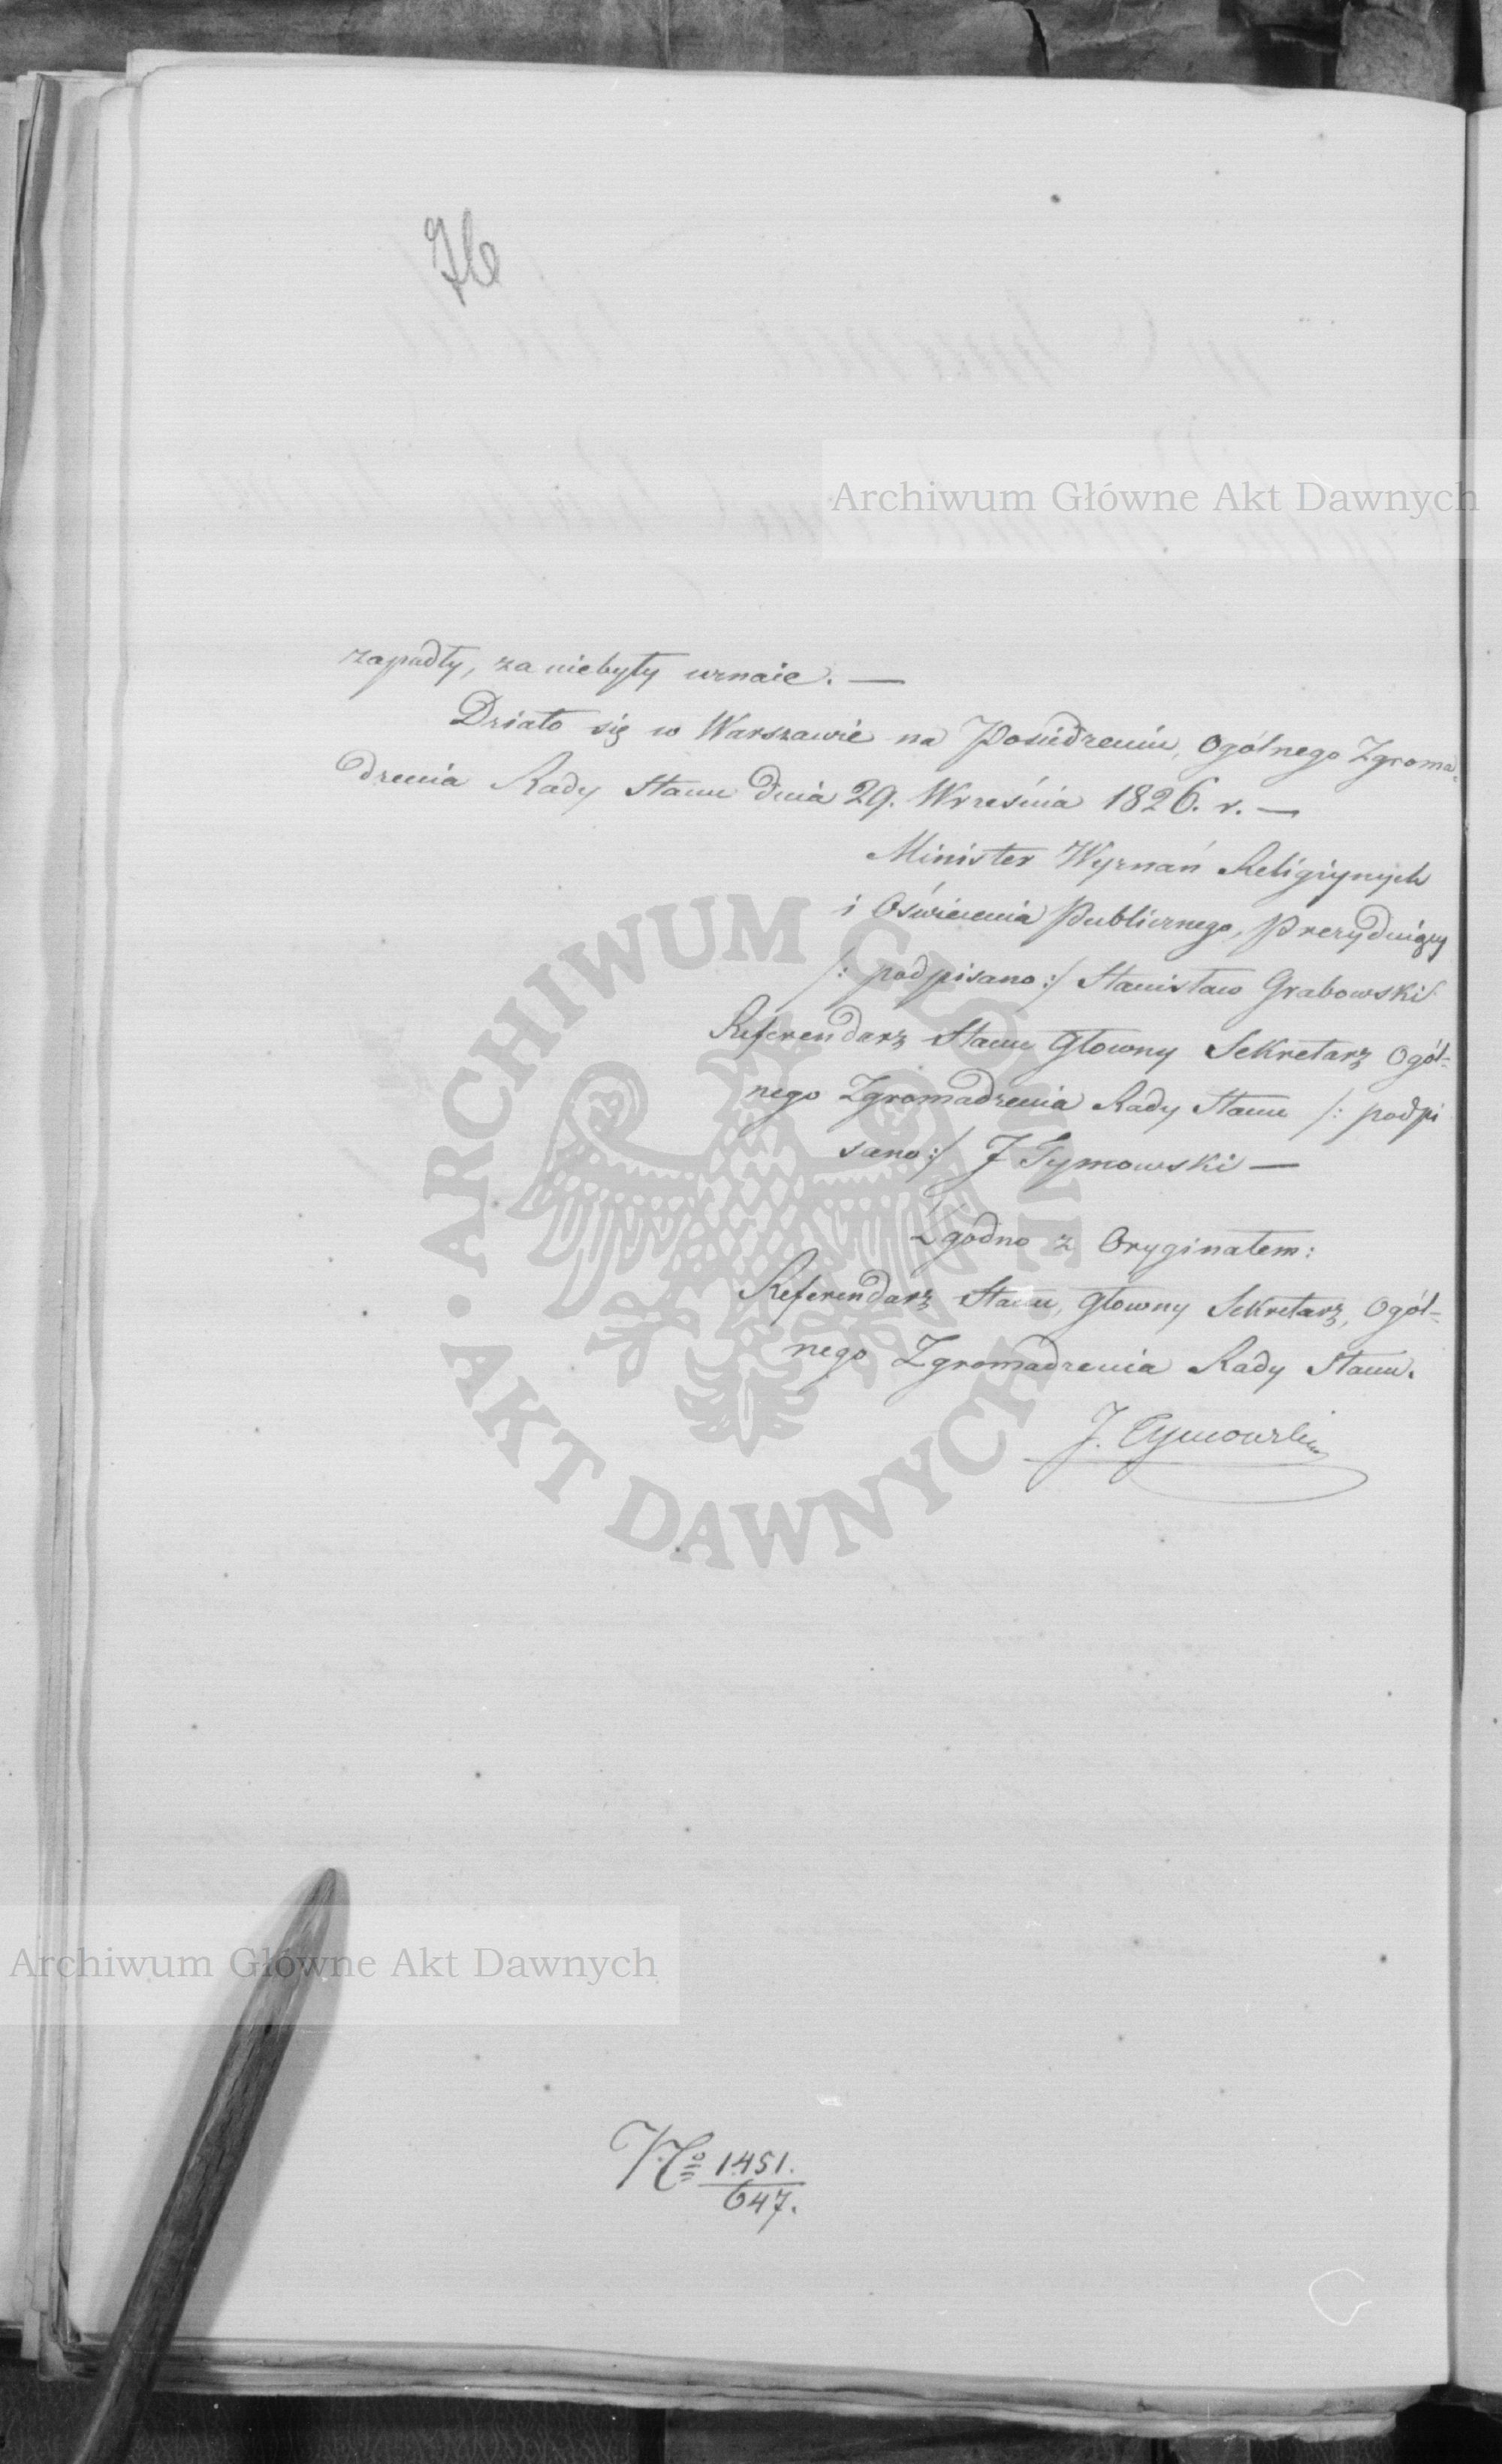 76
Archiwum Główne Akt Dawnych
zapadły, za niebyły uznaie. —
Działo się w Warszawie na Posiedzeniu, Ogólnego Zgroma-
dzenia Rady Stanu dnia 29. Września 1826. r. —
Minister Wyznań Religiynych
i Oświecenia Publicznego, Prezyduiący
/: podpisano :/ Stanisław Grabowski
Referendarz Stanu Głowny Sekretarz Ogól-
nego Zgromadzenia Rady Stanu /: podpi
sano :/ J Tymowski —
Zgodno z Oryginałem:
Referendarz Stanu, Głowny Sekretarz, Ogól-
nego Zgromadzenia Rady Stanu.
J. Tymowski
ARCHIWUM GŁÓWNE • AKT DAWNYCH •
Archiwum Główne Akt Dawnych
1451.
647.